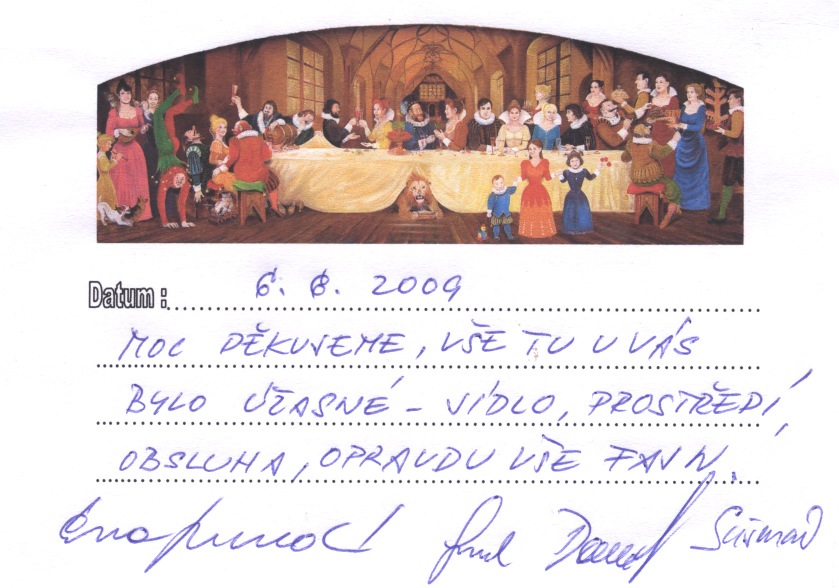 Datum: 6. 8. 2009
MOC DĚKUJEME, VŠE TU U VÁS
BYLO ÚŽASNÉ - JÍDLO, PROSTŘEDÍ,
OBSLUHA, OPRAVDU VŠE FAJN.